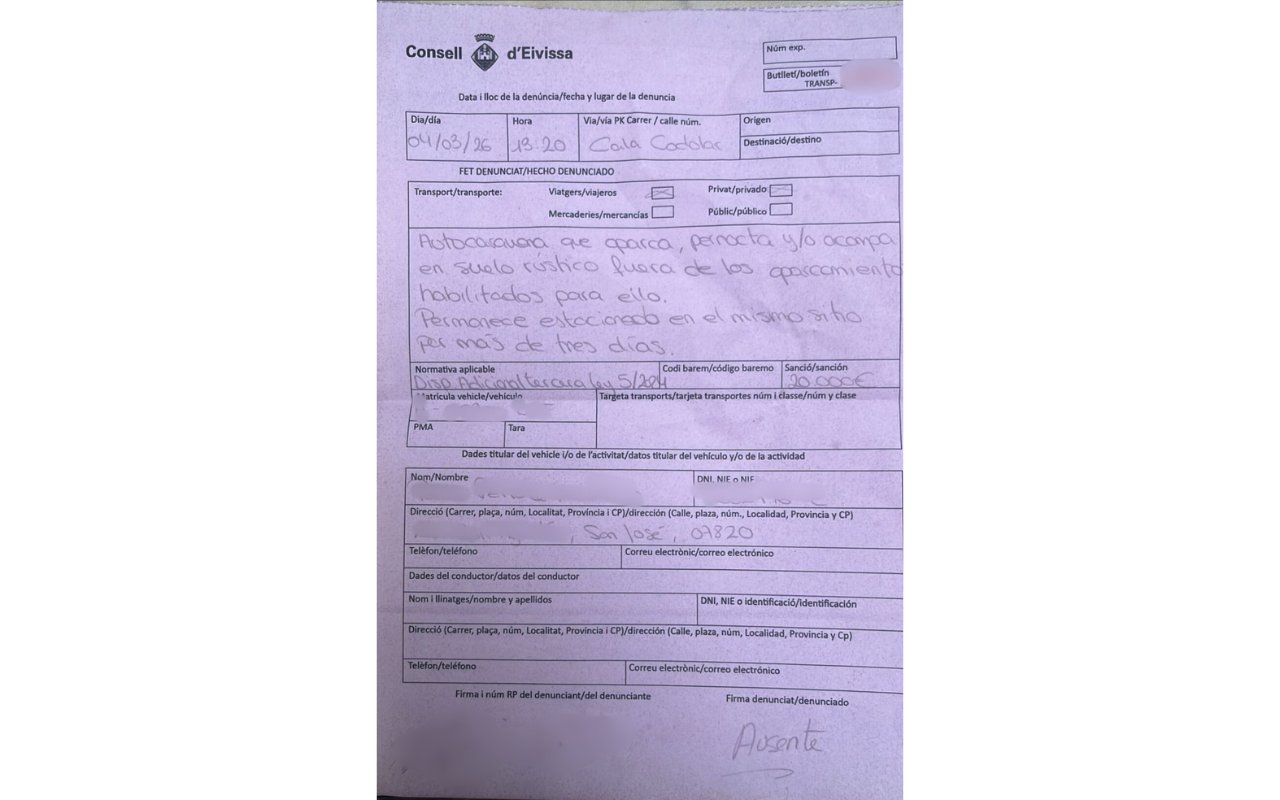 Consell d'Eivissa
Núm exp.
Butlletí/boletín
TRANSP-
Data i lloc de la denúncia/fecha y lugar de la denuncia
Dia/día
04/03/26
Hora
13:20
Via/vía PK Carrer / calle núm.
Cala Codolar
Origen
Destinació/destino
FET DENUNCIAT/HECHO DENUNCIADO
Transport/transporte:
Viatgers/viajeros
Privat/privado
Mercaderies/mercancías
Públic/público
Autocaravana que aparca, pernocta y/o acampa
en suelo rústico fuera de los aparcamiento
habilitados para ello.
Permanece estacionado en el mismo sitio
por más de tres días.
Normativa aplicable
Disp Adicional tercera ley 5/2024
Codi barem/código baremo
Sanció/sanción
20.000€
Matricula vehicle/vehículo
Targeta transports/tarjeta transportes núm i classe/núm y clase
PMA
Tara
Dades titular del vehicle i/o de l'activitat/datos titular del vehículo y/o de la actividad
Nom/Nombre
DNI, NIE o NIF
Direcció (Carrer, plaça, núm, Localitat, Província i CP)/dirección (Calle, plaza, núm., Localidad, Provincia y CP)
, San José, 07820
Telèfon/teléfono
Correu electrònic/correo electrónico
Dades del conductor/datos del conductor
Nom i llinatges/nombre y apellidos
DNI, NIE o identificació/identificación
Direcció (Carrer, plaça, núm, Localitat, Província i CP)/dirección (Calle, plaza, núm, Localidad, Provincia y Cp)
Telèfon/teléfono
Correu electrònic/correo electrónico
Firma i núm RP del denunciant/del denunciante
Firma denunciat/denunciado
Ausente